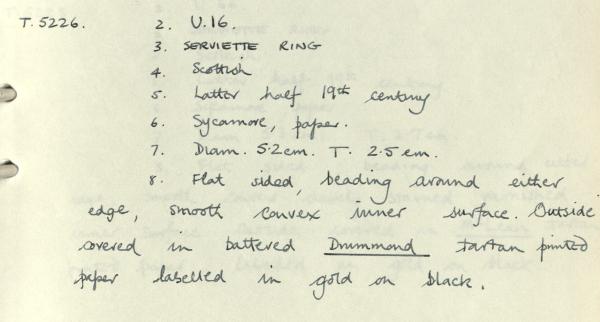 T.5226. 2. U.16.
3. SERVIETTE RING
4. Scottish
5. Latter half 19th century
6. Sycamore, paper.
7. Diam. 5.2cm. T. 2.5cm.
8. Flat sided, beading around either
edge, smooth convex inner surface. Outside
covered in battered Drummond tartan printed
paper labelled in gold on black.